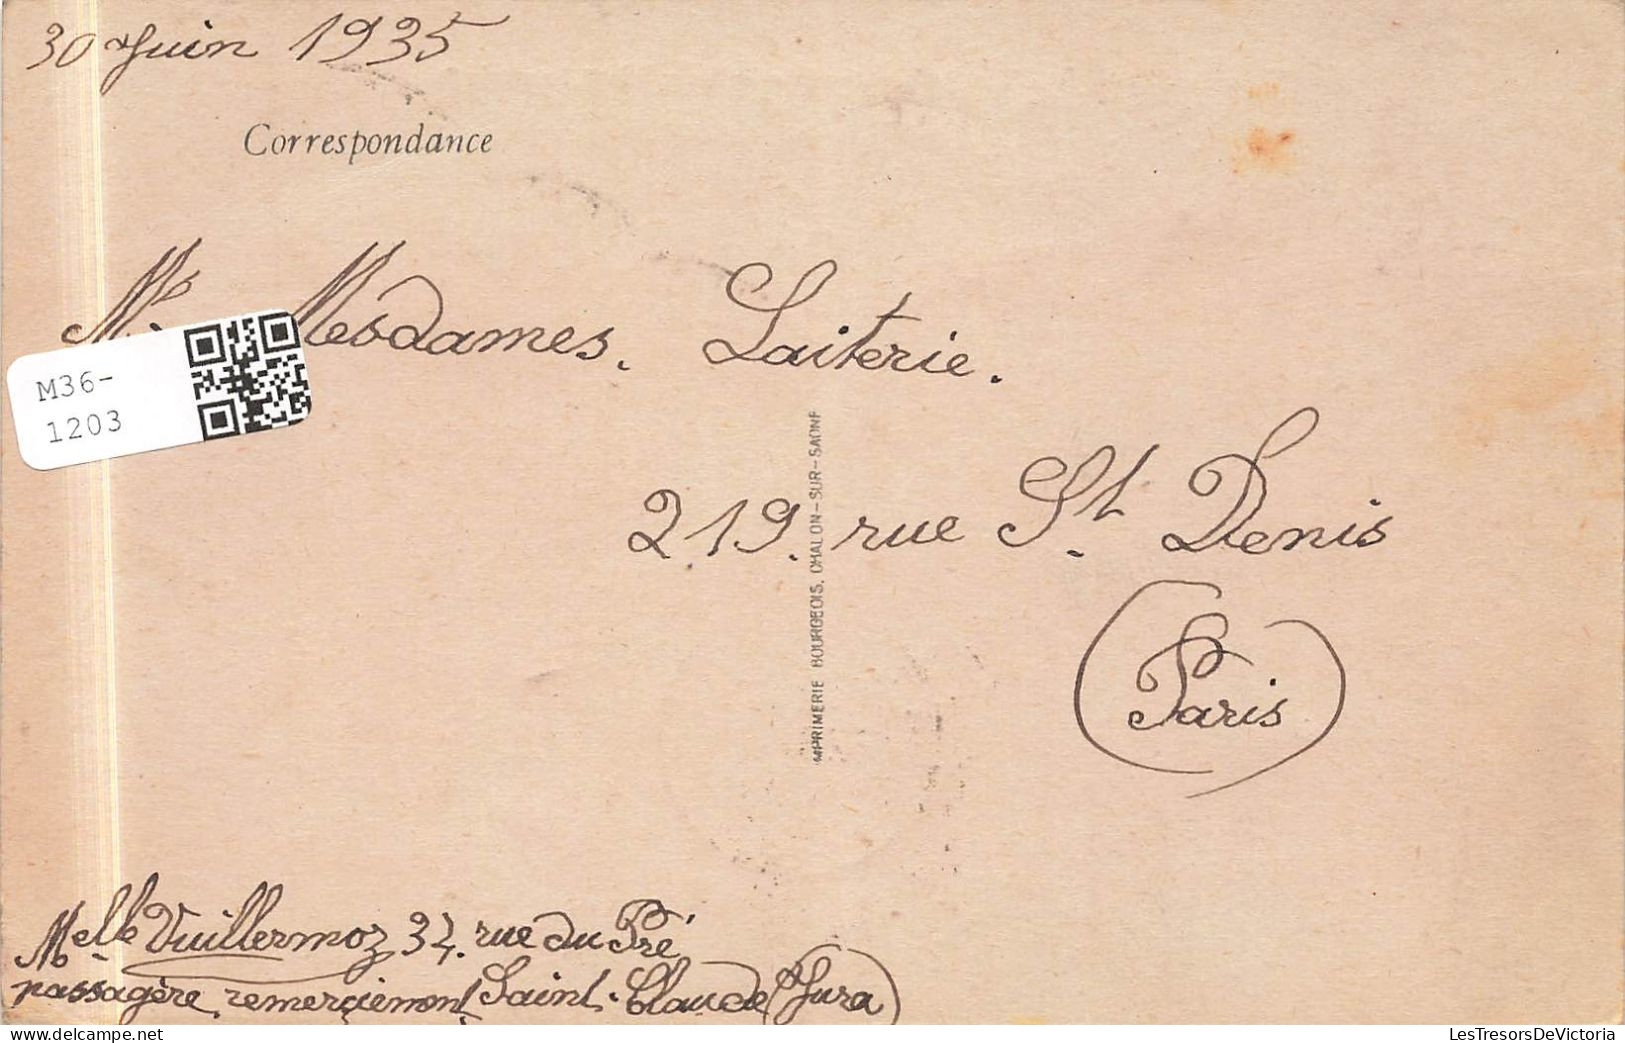 30 Juin 1935
Correspondance
Mesdames. Laiterie.
M36-
1203
219. rue St. Denis
(Paris)
IMPRIMERIE BOURGEOIS, CHALON-SUR-SAONE
Melle Vuillermoz 34. rue du Pré
passagère remerçiement Saint-Claude (Jura)
LesTresorsDeVictoria